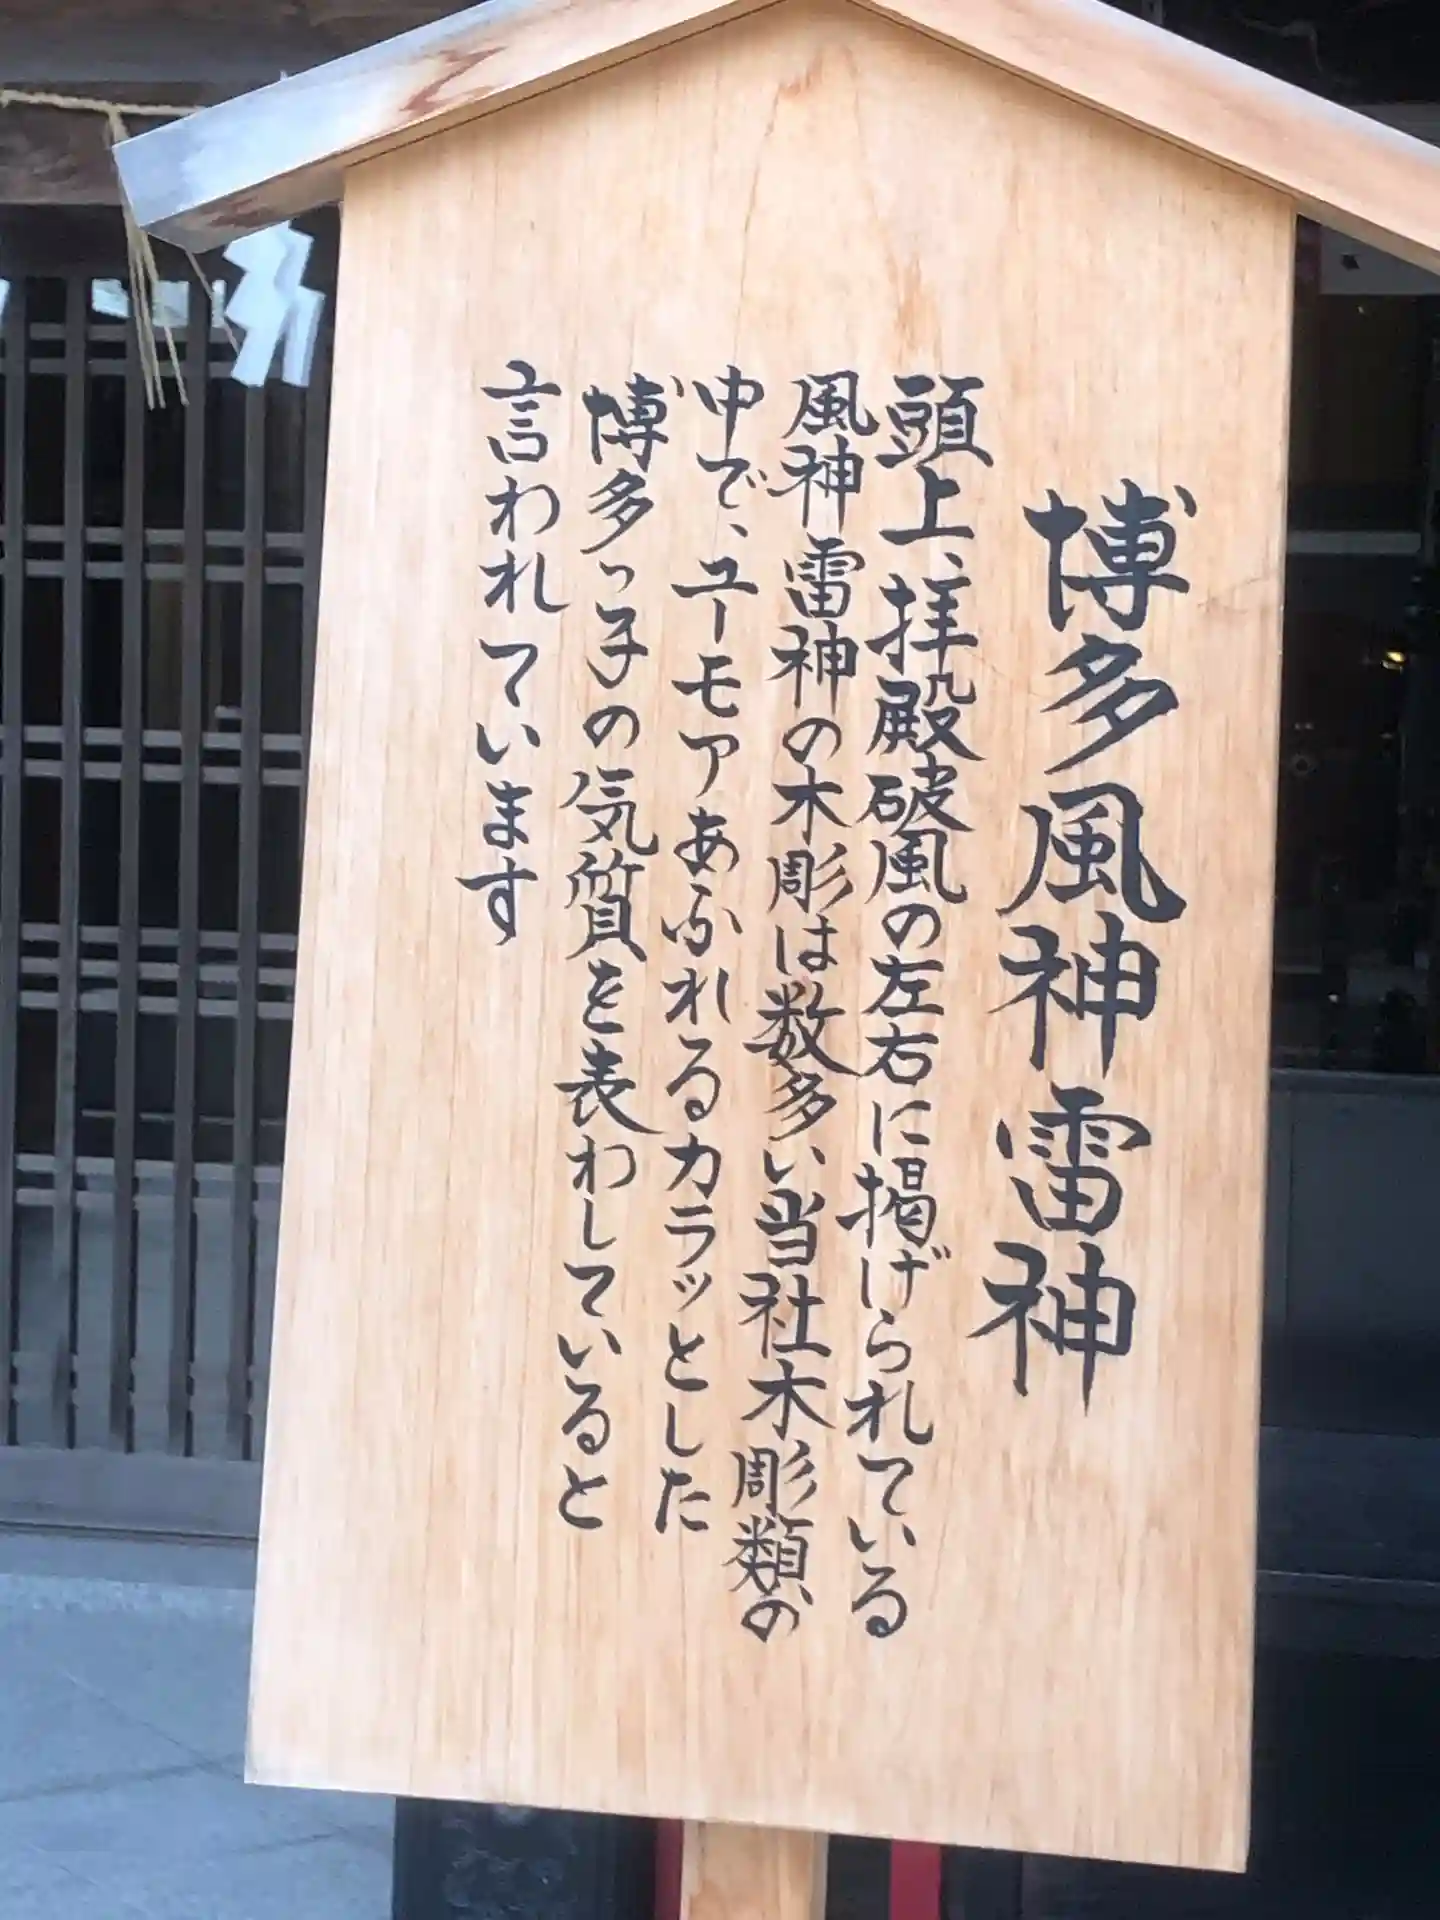 博多風神雷神
頭上、拝殿破風の左右に掲げられている
風神雷神の木彫は数多い当社木彫類の
中で、ユーモアあふれるカラッとした
博多っ子の気質を表わしていると
言われています